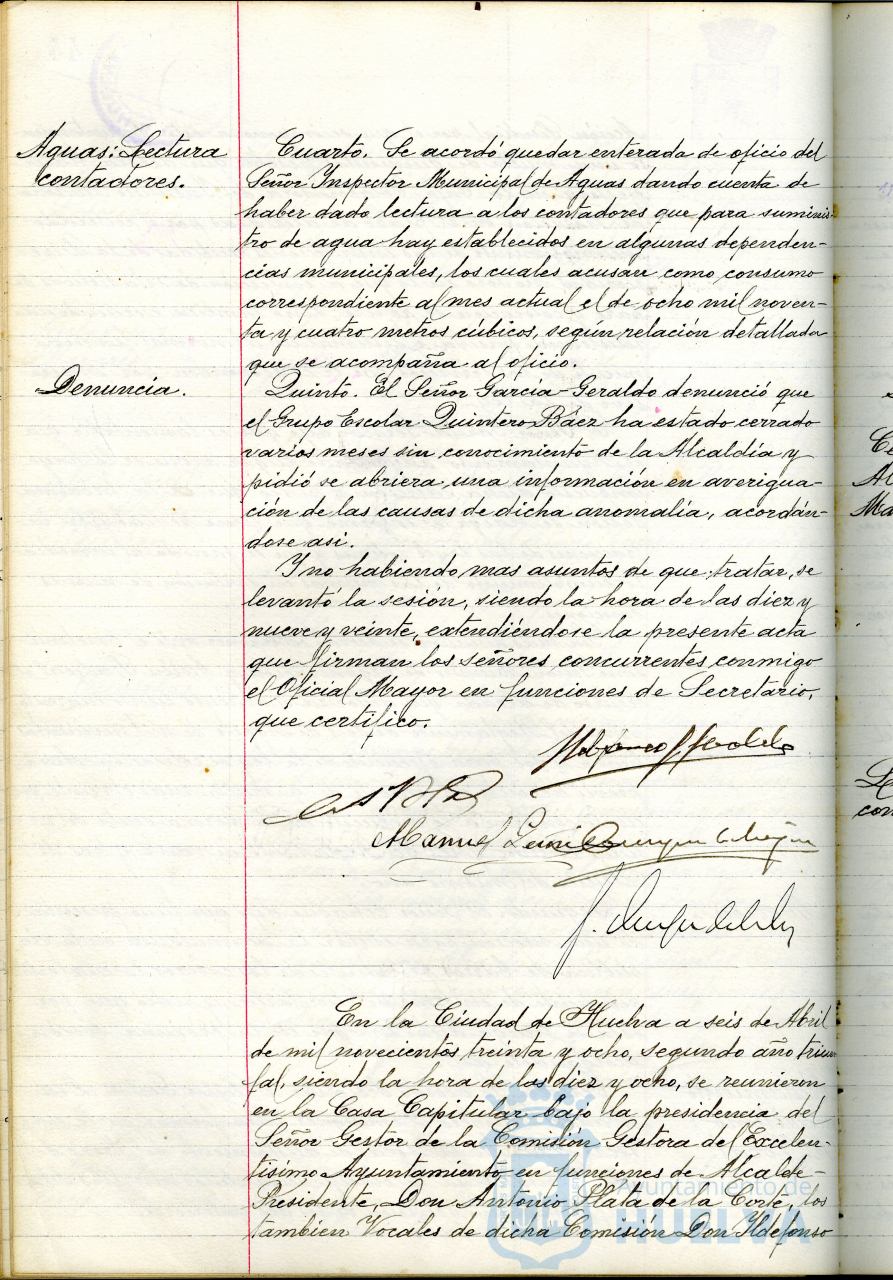 Aguas: Lectura
contadores.
Cuarto. Se acordó quedar enterada de oficio del
Señor Inspector Municipal de Aguas dando cuenta de
haber dado lectura a los contadores que para suminis-
tro de agua hay establecidos en algunas dependen-
cias municipales, los cuales acusan como consumo
correspondiente al mes actual el de ocho mil noven-
ta y cuatro metros cúbicos, según relación detallada
que se acompaña al oficio.
Denuncia.
Quinto. El Señor García-Geraldo denunció que
el Grupo Escolar Quintero Báez ha estado cerrado
varios meses sin conocimiento de la Alcaldía y
pidió se abriera una información en averigua-
ción de las causas de dicha anomalía, acordán-
dose asi.
Y no habiendo mas asuntos de que tratar, se
levantó la sesión, siendo la hora de las diez y
nueve y veinte, extendiéndose la presente acta
que firman los señores concurrentes conmigo
el Oficial Mayor en funciones de Secretario,
que certifico.
Manuel
En la Ciudad de Huelva a seis de Abril
de mil novecientos treinta y ocho, segundo año triun
fal, siendo la hora de las diez y ocho, se reunieron
en la Casa Capitular bajo la presidencia del
Señor Gestor de la Comisión Gestora del Excelen-
tísimo Ayuntamiento en funciones de Alcalde-
Presidente, Don Antonio Plata de la Corte, los
tambien Vocales de dicha Comisión Don Ildefonso
Ayuntamiento de
HUELVA